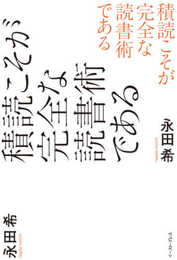 積読こそが
完全な
読書術
である
永田希
積読こそが
完全な
読書術
である
永田希